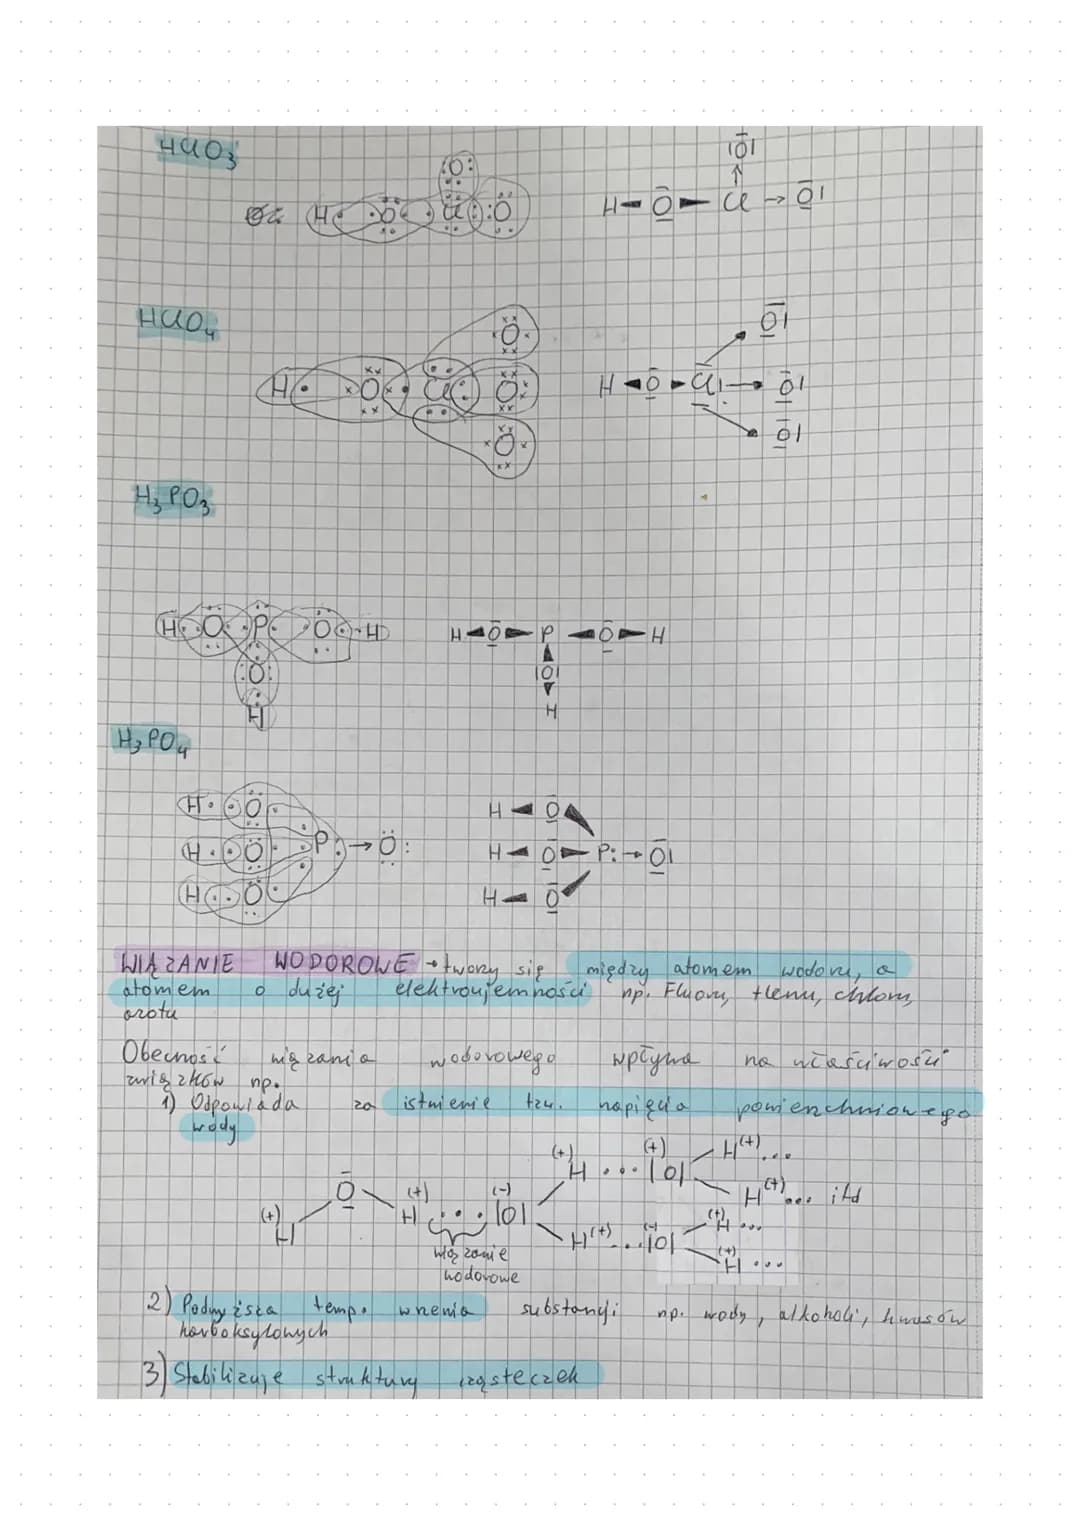 HClO3
H O Cl O
O
|O|
H-O-Cl→O|
HClO4
O
H O Cl O
O
O|
H O Cl→O|
O|
H3PO3
H O P O H
O
H
H O P O H
|O|
H
H3PO4
H O
H O P→O:
H O
H O
H O P:→O|
H O
WIĄZANIE WODOROWE → tworzy się między atomem wodoru, a
atomem o dużej elektroujemności np. Fluoru, tlenu, chloru,
azotu
Obecność wiązania wodorowego wpływa na właściwości
związków np.
1) Odpowiada za istnienie tzw. napięcia powierzchniowego
wody
(+) H ... (+) |O| H(+)...
H(+)... itd
(+) H O (+) H ... (-) |O|
H(+)... (-) |O| (+) H ...
(+) H ...
wiązanie
wodorowe
2) Podwyższa temp. wrzenia substancji np. wody, alkoholi, kwasów
karboksylowych
3) Stabilizuje struktury cząsteczek